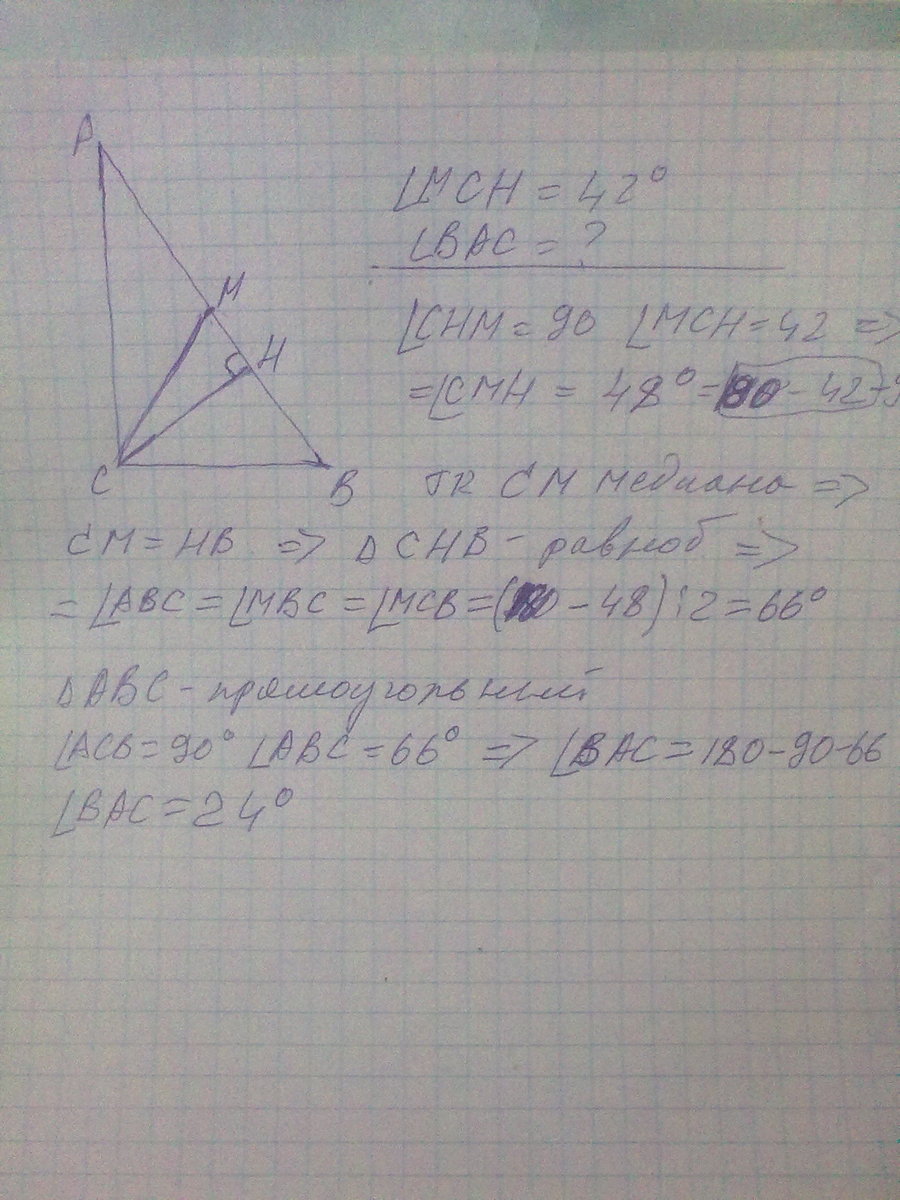 A
M
H
C
B
∠MCH = 42°
∠BAC = ?
∠CHM = 90 ∠MCH = 42 =>
=∠CMH = 48° = 180 - 42 - 9
TR CM медиана =>
CM = HB => ΔCHB - равноб =>
= ∠ABC = ∠MBC = ∠MCB = (180 - 48) : 2 = 66°
ΔABC - прямоугольный
∠ACB = 90° ∠ABC = 66° => ∠BAC = 180 - 90 - 66
∠BAC = 24°